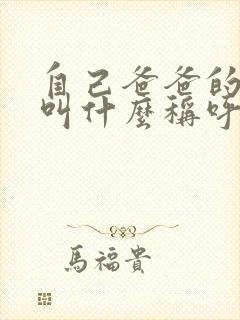 自己爸爸的
叫什麼稱呼
馬福貴